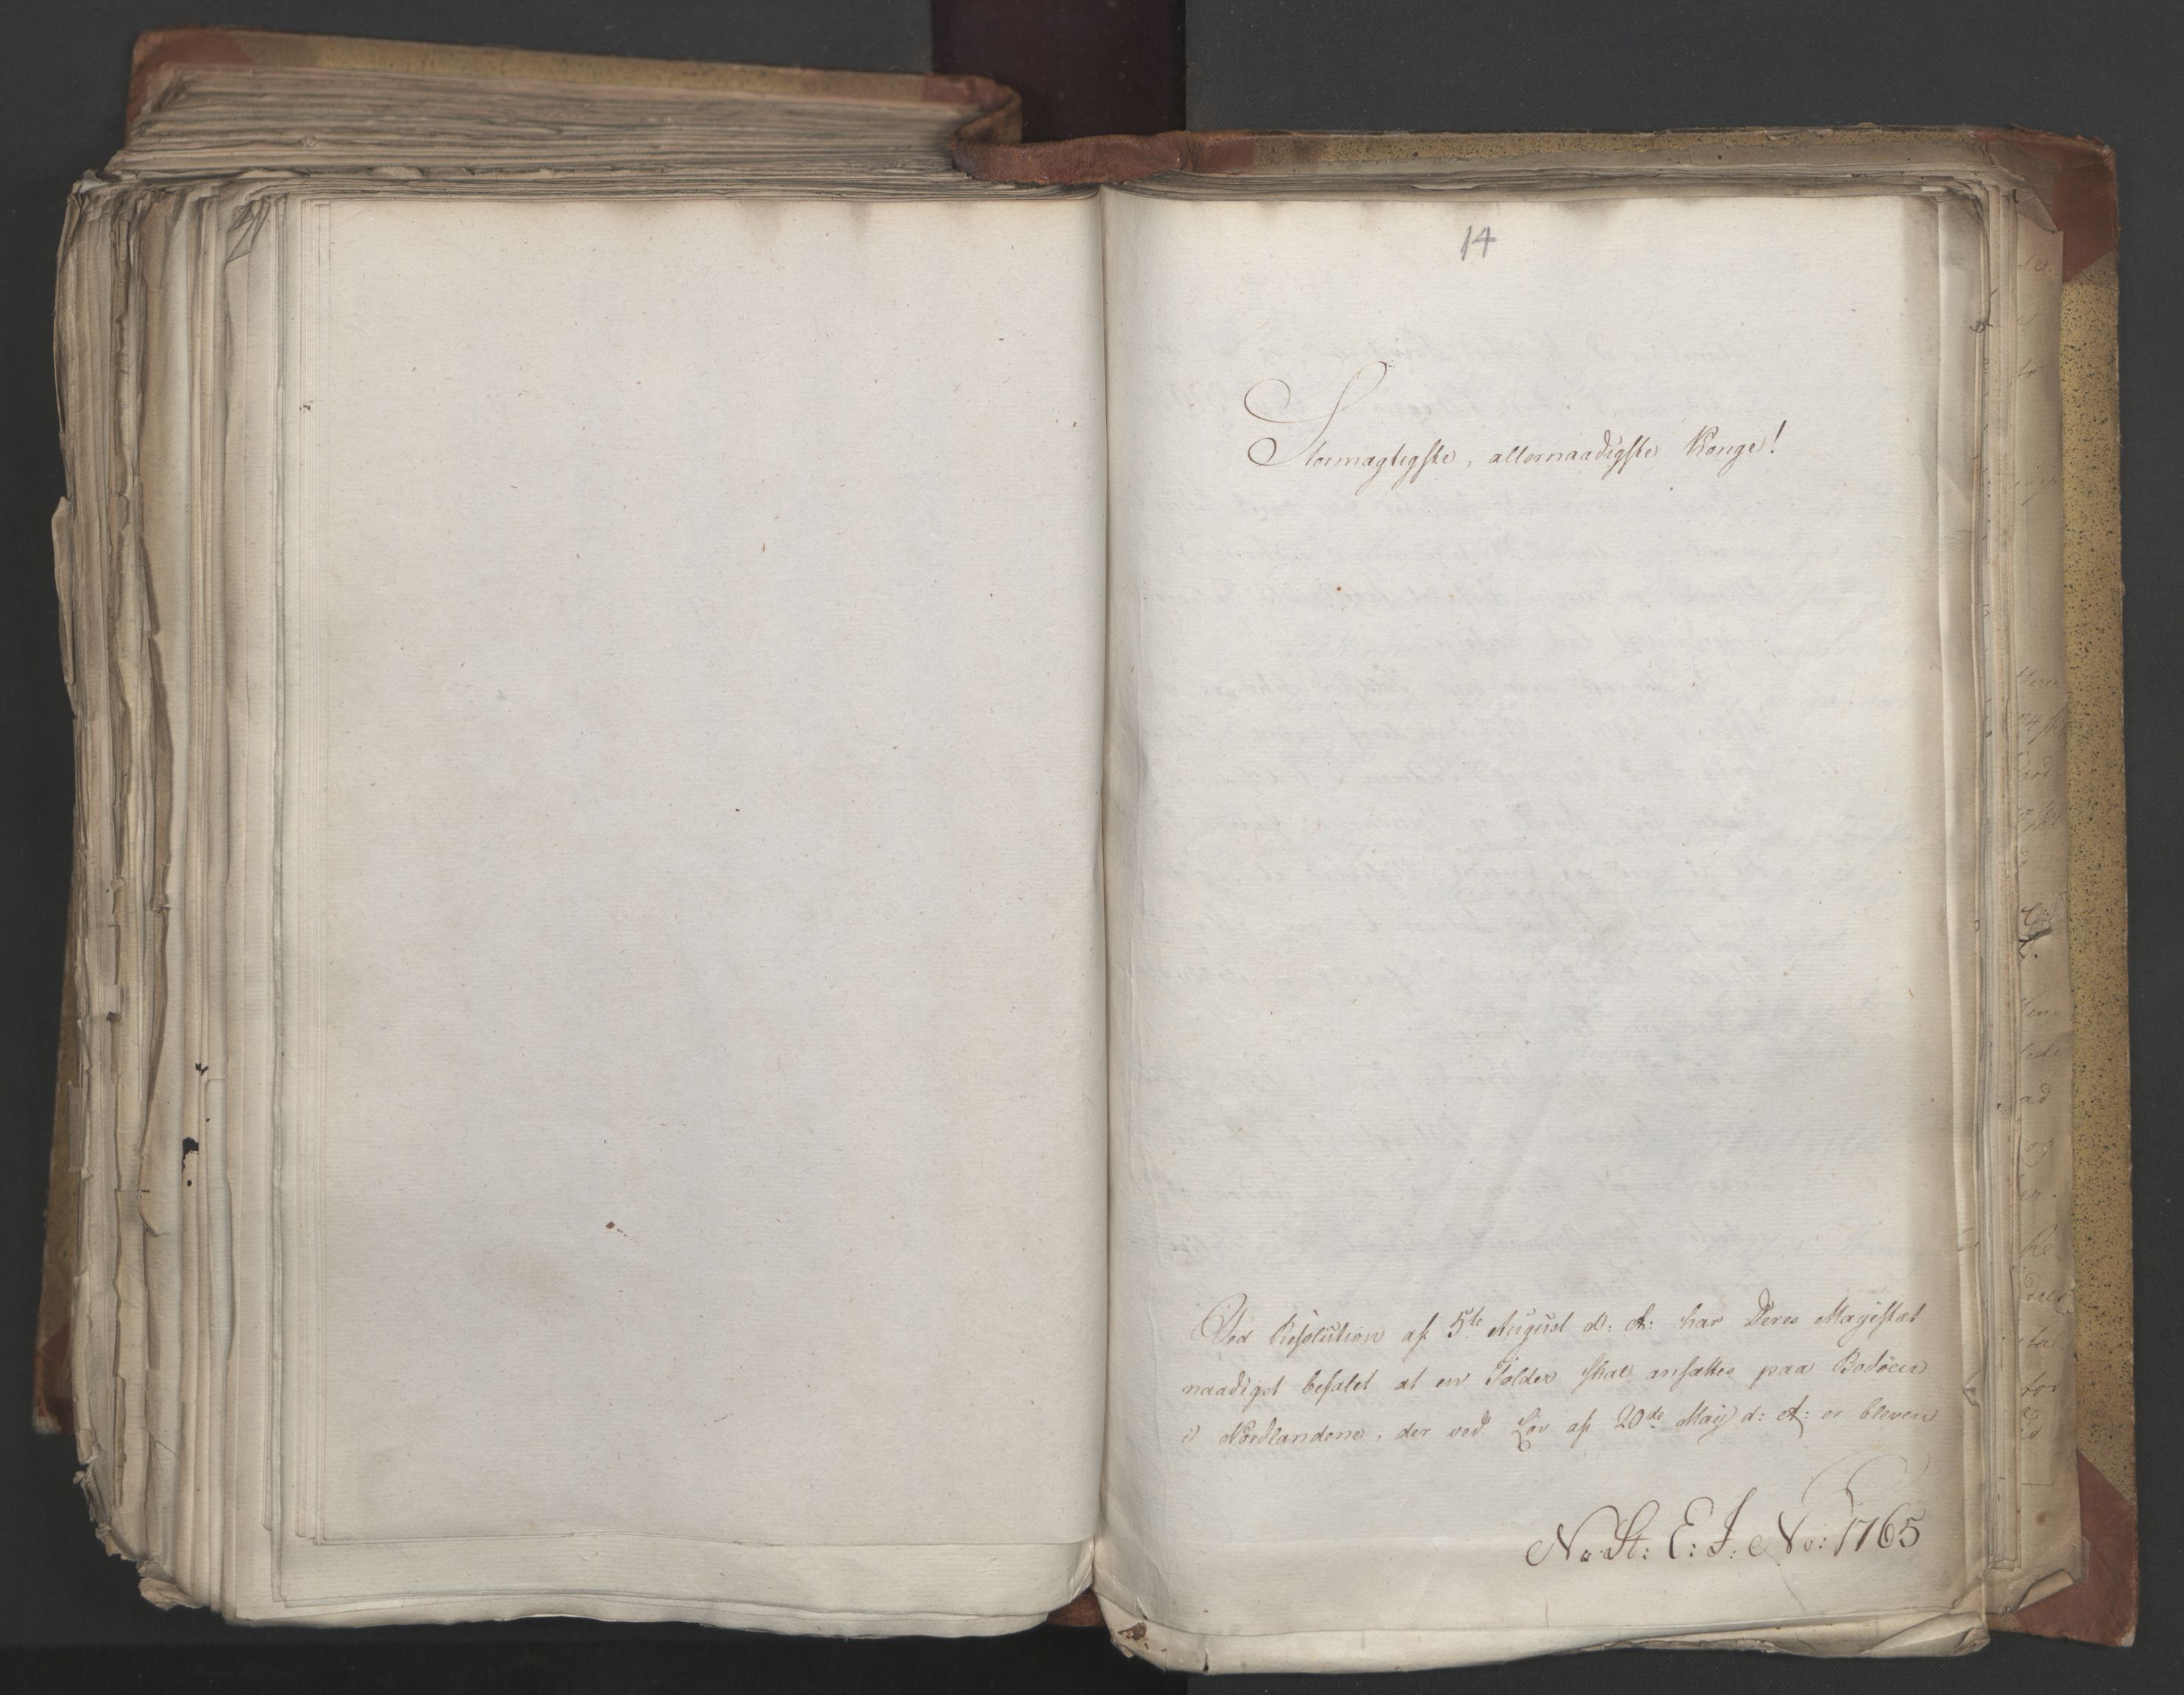 14
Stormægtigste, allernaadigste Konge!
Ved Resolution af 5te August d: A: har Deres Majestæt
naadigst befalet at en Tolder skal ansættes paa Bodöen
i Nordlandene, der ved Lov af 20de Maij d: A: er bleven
No: St: E: J: No: 1765